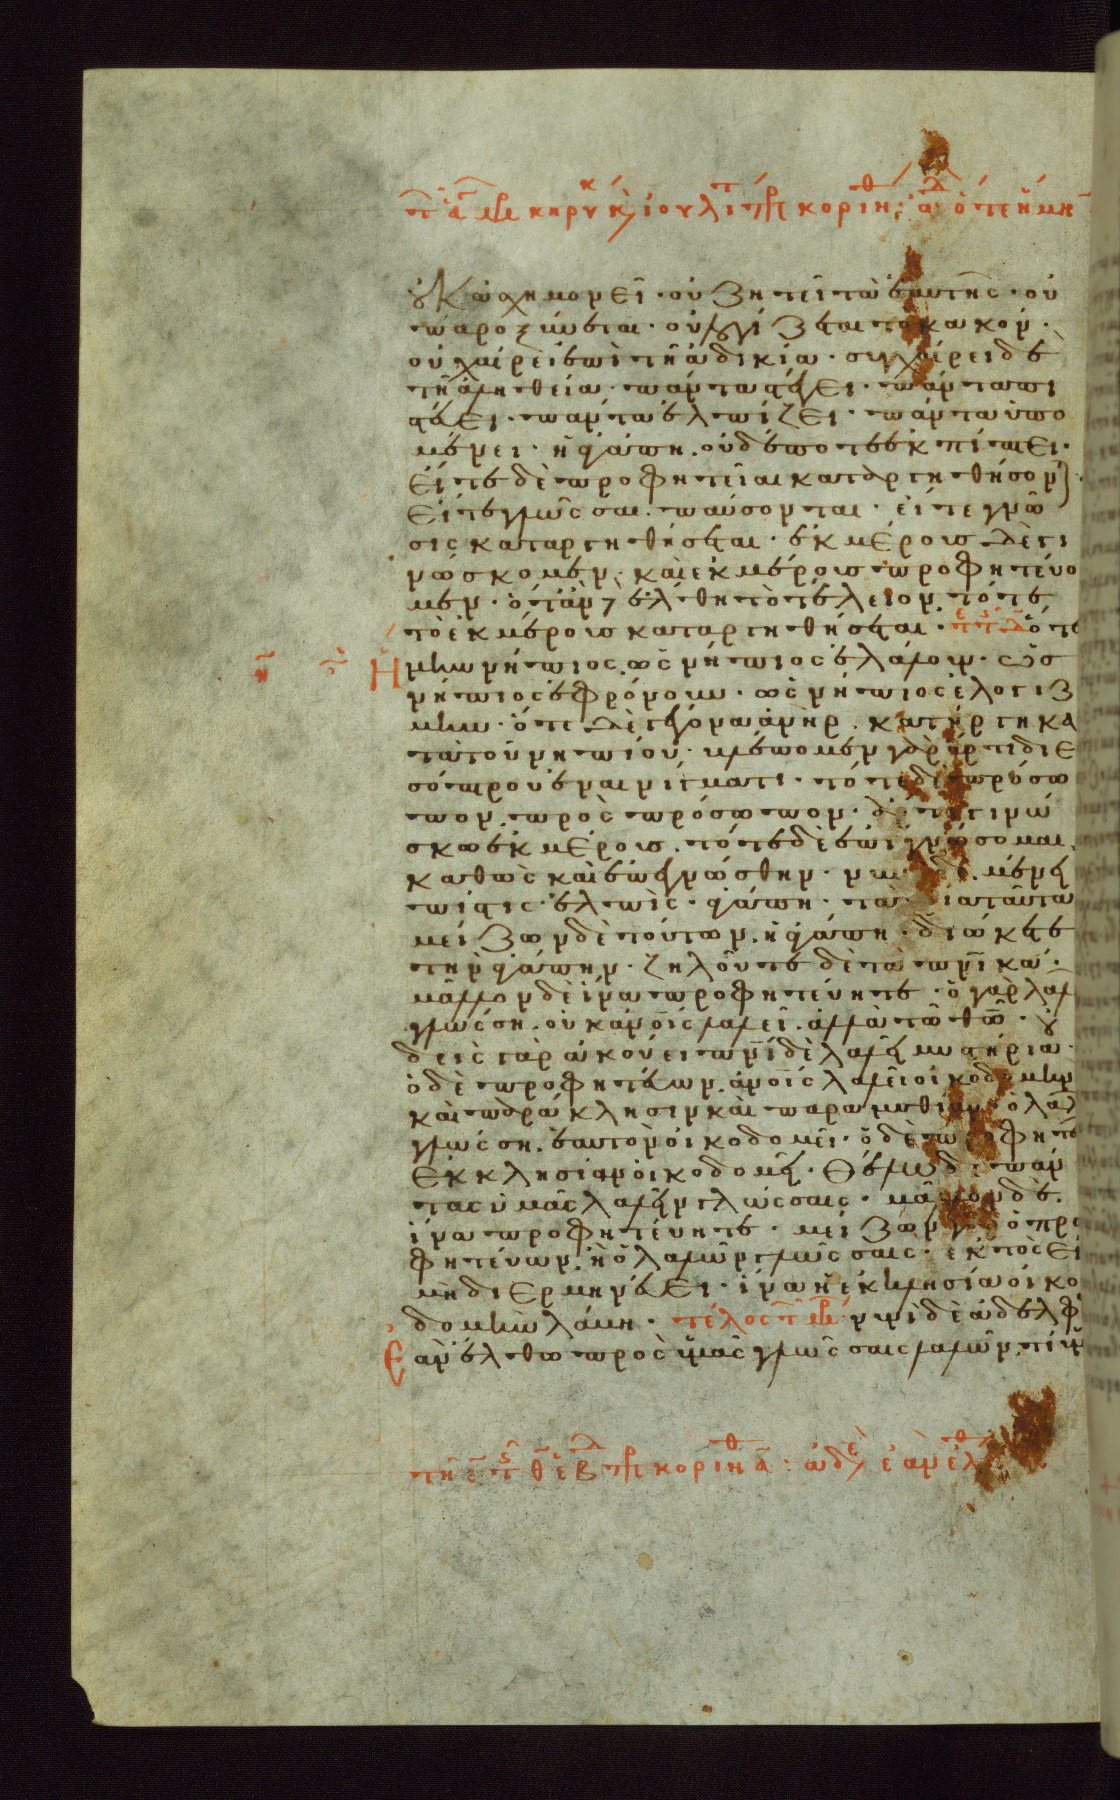 οὐκ ἀσχημονεῖ · οὐ ζητεῖ τὰ ἑαυτῆς · οὐ
παροξύνεται · οὐ λογίζεται τὸ κακόν ·
οὐ χαίρει ἐπὶ τῆ ἀδικία · συγχαίρει δὲ
τῆ ἀληθεία · πάντα στέγει · πάντα πι
στεύει · πάντα ἐλπίζει · πάντα ὑπο
μένει · ἡ ἀγάπη οὐδέποτε ἐκπίπτει ·
εἴτε δὲ προφητεῖαι καταργηθήσονται ·
εἴτε γλῶσσαι παύσονται · εἴτε γνῶ
σις καταργηθήσεται · ἐκ μέρους δὲ γι
νώσκομεν · καὶ ἐκ μέρους προφητεύο
μεν · ὅταν δὲ ἔλθη τὸ τέλειον τότε
τὸ ἐκ μέρους καταργηθήσεται · ὅτε
ἤμην νήπιος, ὡς νήπιος ἐλάλουν · ὡς
νήπιος ἐφρόνουν · ὡς νήπιος ἐλογιζ
μην · ὅτε δὲ γέγονα ἀνήρ · κατήργηκα
τὰ τοῦ νηπίου · βλέπομεν γὰρ ἄρτι δι ἐ
σόπτρου ἐν αἰνίγματι · τότε δὲ πρόσω
πον πρὸς πρόσωπον · ἄρτι γινώ
σκω ἐκ μέρους · τότε δὲ ἐπιγνώσομαι
καθὼς καὶ ἐπεγνώσθην · νυνὶ δὲ μένει
πίστις · ἐλπὶς · ἀγάπη · τὰ τρία ταῦτα
μείζων δὲ τούτων ἡ ἀγάπη · διώκετε
τὴν ἀγάπην · ζηλοῦτε δὲ τὰ πνικά ·
μᾶλλον δὲ ἵνα προφητεύητε · ὁ γὰρ λαλ
γλώσση · οὐκ ἀνοις λαλεῖ · ἀλλὰ τῶ θῶ · οὐ
δεὶς γὰρ ἀκούει πνι δὲ λαλεῖ μυστήρια ·
ὁ δὲ προφητεύων ἀνοις λαλεῖ οἰκοδομὴν
καὶ παράκλησιν καὶ παραμυθίαν · ὁ λαλ
γλώσση ἑαυτὸν οἰκοδομεῖ · ὁ δὲ προφητε
ἐκκλησίαν οἰκοδομεῖ · θέλω δὲ πάν
τας ὑμᾶς λαλεῖν γλώσσαις · μᾶλλον δὲ
ἵνα προφητεύητε · μείζων γὰρ ὁ προ
φητεύων ἢ ὁ λαλῶν γλώσσαις · ἐκτὸς εἰ
μὴ διερμηνεύει · ἵνα ἡ ἐκκλησία οἰκο
δομὴν λάβη · τέλος νυνὶ δὲ ἀδελφ
ἐὰν ἔλθω πρὸς ὑμᾶς γλώσσαις λαλῶν τί ὑμ